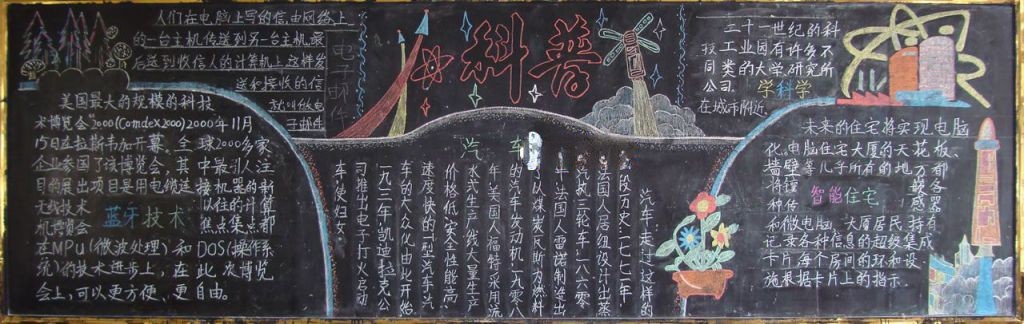 科普
人们在电脑上写的信由网络上
的一台主机传送到另一台主机,最
后送到收信人的计算机上,这样发
送和接收的信
就叫做电
子邮件
电子邮件
美国最大的规模的科技
术博览会"2000(Comdex2000)2000年11月
15日在拉斯韦加开幕、全球2000多家
企业参国了该博览会,其中最引人注
目的展出项目是用电缆连接机器的新
无线技术
蓝牙技术
以往的计算
机博览会
焦点集中都
在MPU(微波处理)和DOS(操作系
统)的技术进步上,在此次博览
会上,可以更方便、更自由。
汽车
汽车走过这样的
一段历史:一七七二年
法国人居纽设计出蒸
汽机三轮车,一八六零
年法国人雷诺制造出
以煤炭瓦斯为燃料
的汽车发动机,一九零八
年美国人福特采用流
水式生产线大量生产
价格低、安全性能高、
速度快的T型汽车,汽
车的大众化由此开始。
一九一二年凯迪拉克公
司推出电子打火启动
车,使妇女
二十一世纪的科
技工业园有许多不
同类的大学、研究所
公司,
学科学
在城市附近。
未来的住宅将实现电脑
化,电脑住宅大厦的天花板、
墙壁等几乎所有的地方都
将镶
智能住宅
各
种传
感器
和微电脑,大厦居民持有
记录各种信息的超级集成
卡片,每个房间的环和设
施根据卡片上的指示。